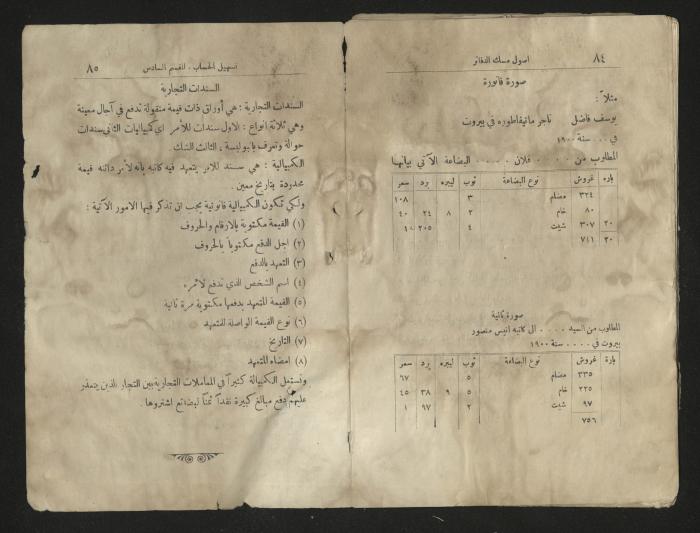 ٨٤
اصول مسك الدفاتر
صورة فاتورة
مثلاً :
يوسف فاضل تاجر مانيفاطوره في بيروت
في ... سنة ١٩٠٠
المطلوب من . . . . فلان . . . . البضاعة الآتي بيانها
باره غروش نوع البضاعة ثوب ليبره يرد سعر
٣٢٤ ٣ ١٠٨
٨٠ خام ٢ ٨ ٢٤ ٤٠
٢٠ ٣٠٧ شيت ٤ ٢٠٥
٢٠ ٧٤١
صورة ثانية
المطلوب من السيد . . . . الى كاتبه انيس منصور
بيروت في . . . . سنة ١٩٠٠
باره غروش نوع البضاعة ثوب ليبره يرد سعر
٣٣٥ ٥ ٦٧
٢٢٥ خام ٥ ٩ ٣٨ ٤٥
٩٧ شيت ٢ ٩٧ ١
٧٥٦
تسهيل الحساب . القسم السادس
٨٥
السندات التجارية
السندات التجارية : هي أوراق ذات قيمة منقولة تدفع في آجال معينة
وهي ثلاثة انواع : الاول سندات للأمر اي كمبيالات الثاني سندات
حوالة وتعرف بالبوليسة ، الثالث الشك .
الكمبيالية : هي سند للامر يتعهد فيه كاتبه بأنه لأمر دائنه قيمة
محدودة بتاريخ معين .
ولكي تكون الكمبيالية قانونية يجب ان تذكر فيها الامور الآتية :
(١) القيمة مكتوبة بالارقام والحروف
(٢) اجل الدفع مكتوباً بالحروف
(٣) التعهد بالدفع
(٤) اسم الشخص الذي تدفع لأمره
(٥) القيمة المتعهد بدفعها مكتوبة مرة ثانية
(٦) نوع القيمة الواصلة للمتعهد
(٧) التاريخ
(٨) امضاء المتعهد
وتستعمل الكمبيالة كثيراً في المعاملات التجارية بين التجار الذين يتعذر
عليهم دفع مبالغ كبيرة نقداً ثمناً لبضائع اشتروها .